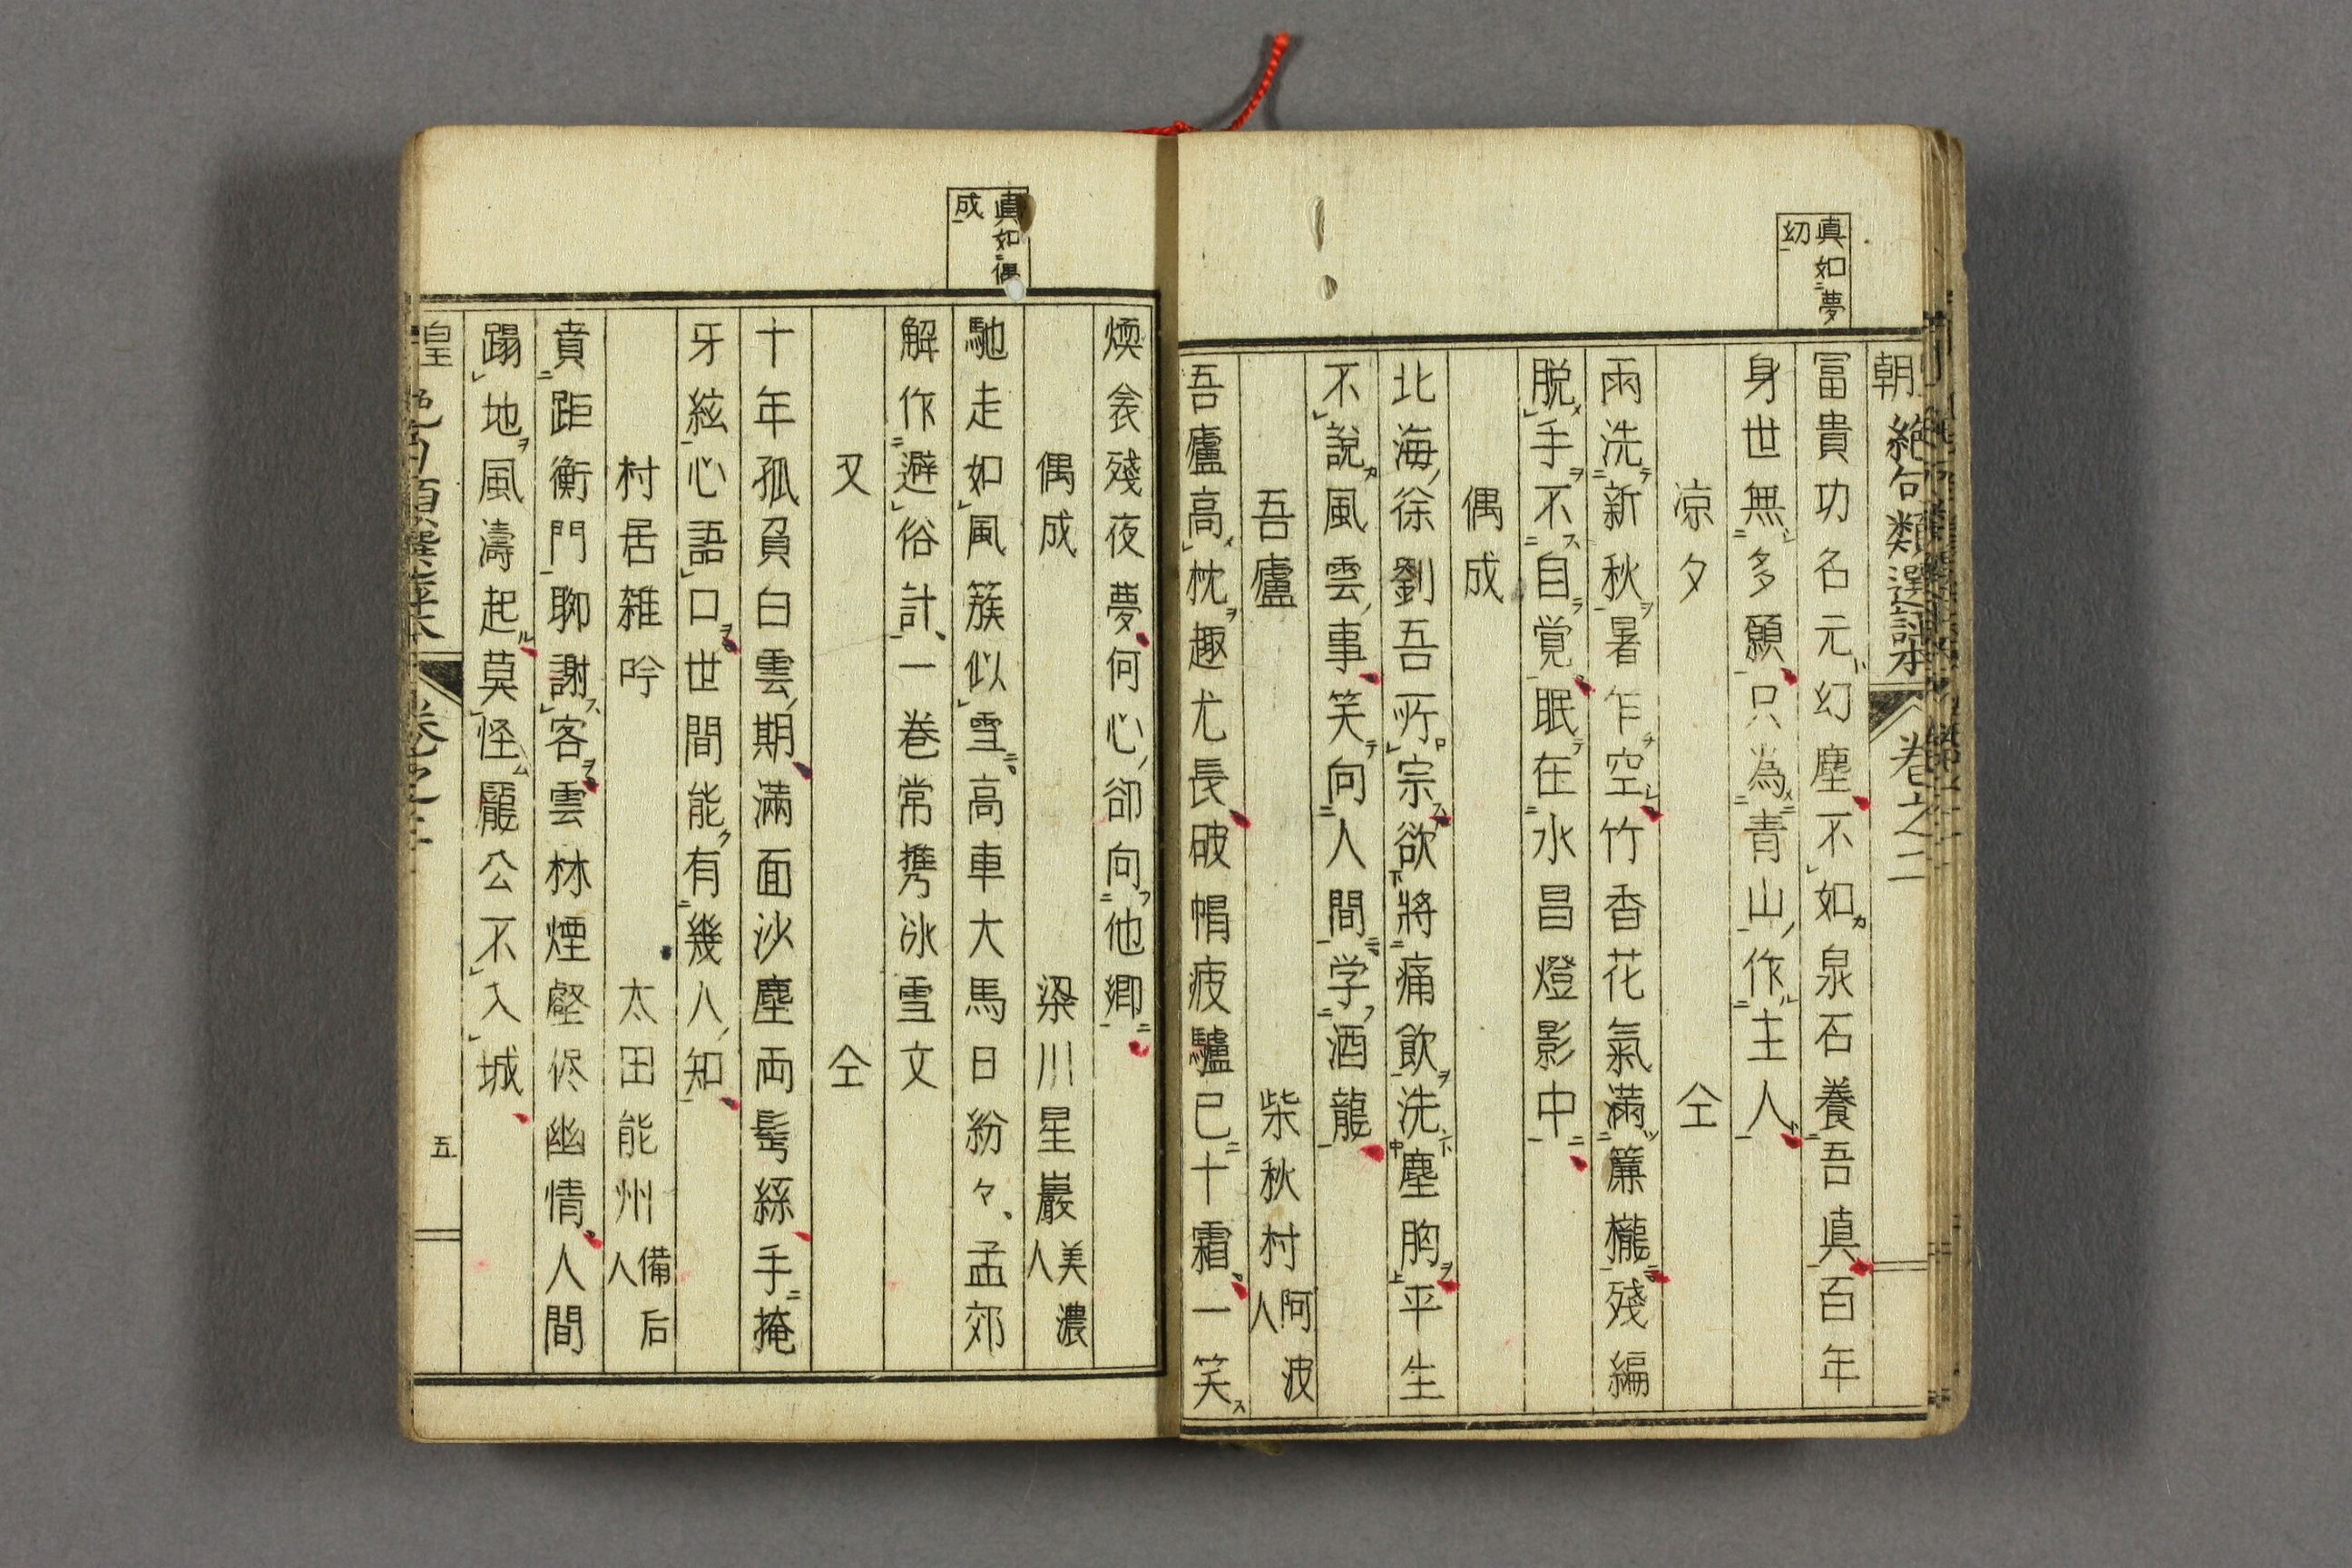 真如夢
幻
朝絶句類選評本 卷之二
冨貴功名元幻塵不如泉石養吾真百年
身世無多願只為青山作主人
凉夕 仝
雨洗新秋暑乍空竹香花氣滿簾櫳殘編
脱手不自覚眠在水昌燈影中
偶成
北海徐劉吾所宗欲將痛飲洗塵胸平生
不說風雲事笑向人間学酒龍
吾廬 柴秋村 阿波人
吾廬高枕趣尤長破帽疲驢已十霜一笑
真如偶
成
煗衾殘夜夢何心卻向他鄉
偶成 梁川星巖 美濃人
馳走如風簇似雪高車大馬日紛々孟郊
解作避俗計一巻常携冰雪文
又 仝
十年孤負白雲期滿面沙塵両髩絲手掩
牙絃心語口世間能有幾人知
村居雜吟 太田能州 備后人
賁距衡門聊謝客雲林煙壑侭幽情人間
蹋地風濤起莫怪龎公不入城
皇 卷之二
五